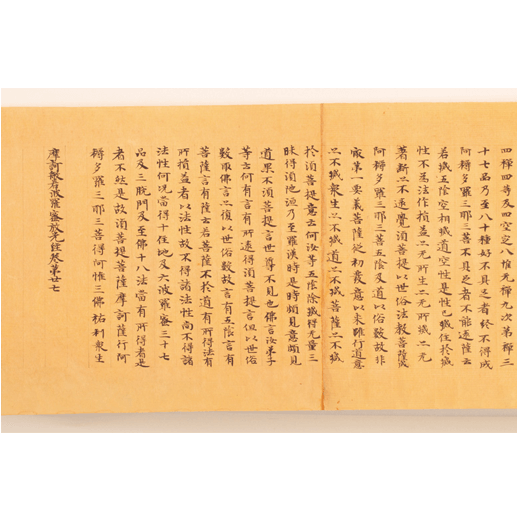 四禪四等及四空定八惟无禪九次第禪三
十七品乃至八十種好不具足者終不得成
阿耨多羅三耶三菩不具足者不能逮薩云
若城五陰空相城道空性是性也城住於城
性不為法作損益亦无所生亦无所城亦无
著斷亦不逮覺須菩提以世俗法故菩薩成
阿耨多羅三耶三菩五陰及道以俗數故非
㝡第一要義菩薩從初發意以來雖行道意
亦不城眾生亦不城道亦不城菩薩亦不城
於須菩提意云何汝等五陰除城得无量三
昧得須陁洹乃至羅漢時是時頗見意頗見
道果不須菩提言世尊不見也佛言汝弟子
等云何有言有所逮得須菩提言但以世俗
數取佛言亦復以世俗數故言有五陰言有
菩薩言有薩云若菩薩不於道有所得法有
所損益者以法性故不得諸法性尚不得諸
法性何況當得十住地及六波羅蜜三十七
品及三脫門及至佛十八法當有所得者是
者不然是故須菩提菩薩摩訶薩行阿
耨多羅三耶三菩得阿惟三佛祐利眾生
摩訶般若波羅蜜放光經卷第廿七